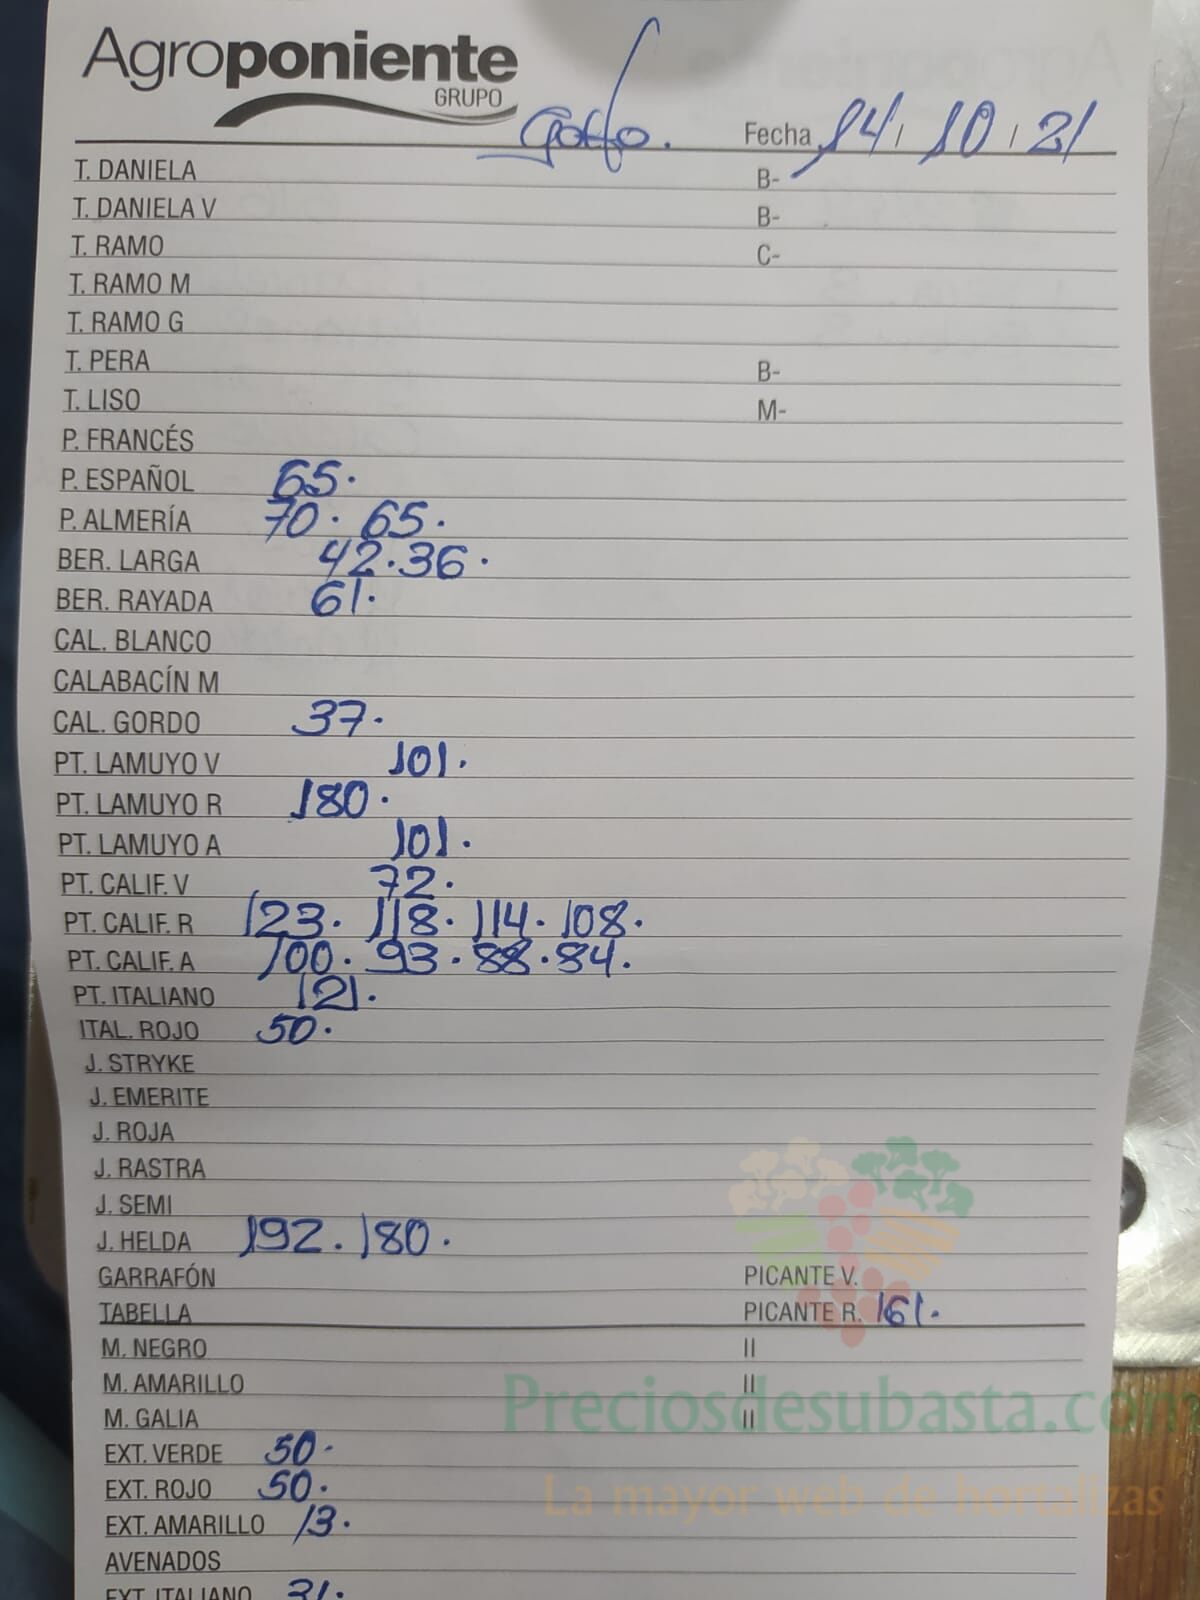 Agroponiente
GRUPO
Golfo. Fecha 14 / 10 / 21
T. DANIELA B-
T. DANIELA V B-
T. RAMO C-
T. RAMO M
T. RAMO G
T. PERA B-
T. LISO M-
P. FRANCÉS
P. ESPAÑOL 65.
P. ALMERÍA 70. 65.
BER. LARGA 42.36.
BER. RAYADA 61.
CAL. BLANCO
CALABACÍN M
CAL. GORDO 37.
PT. LAMUYO V 101.
PT. LAMUYO R 180.
PT. LAMUYO A 101.
PT. CALIF. V 72.
PT. CALIF. R 123. 118. 114. 108.
PT. CALIF. A 100. 93. 88. 84.
PT. ITALIANO 121.
ITAL. ROJO 50.
J. STRYKE
J. EMERITE
J. ROJA
J. RASTRA
J. SEMI
J. HELDA 192. 180.
GARRAFÓN PICANTE V.
TABELLA PICANTE R. 161.
M. NEGRO II
M. AMARILLO II
M. GALIA II
Preciosdesubasta.com
EXT. VERDE 50.
EXT. ROJO 50.
La mayor web de hortalizas
EXT. AMARILLO 13.
AVENADOS
EXT. ITALIANO 31.